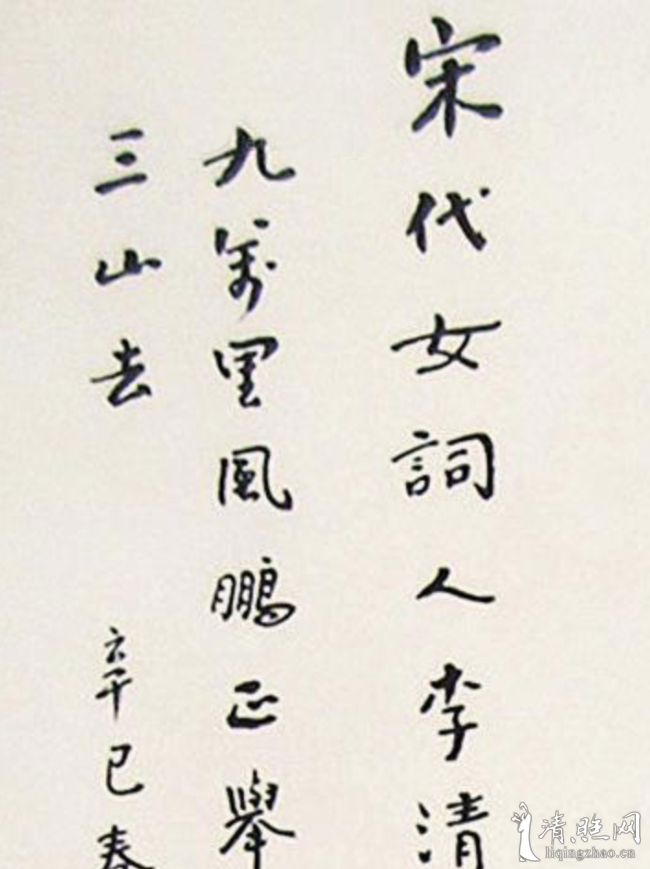 宋代女詞人李清
九萬里風鵬正舉
三山去
辛巳春
清旺网
liqingzhao.cn